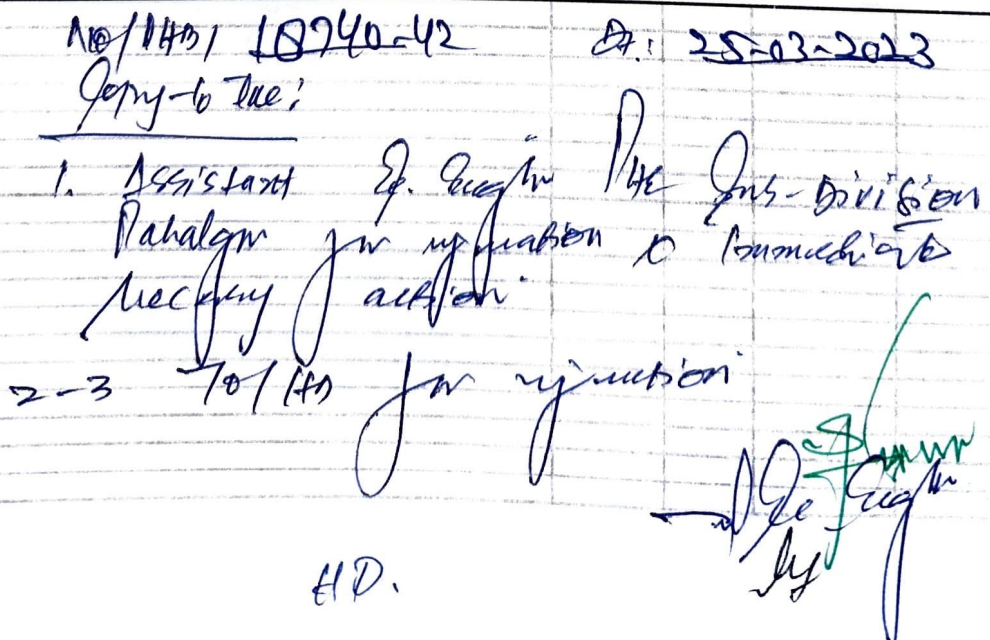 No/PHB/ 10740-42 Dt: 25-03-2023
Copy to the:
1. Assistant Ex. Engin PHE Sub-Division
Pahalgam for information & Immediate
Necessary action.
2-3 for information
Ex. Engin
HD.